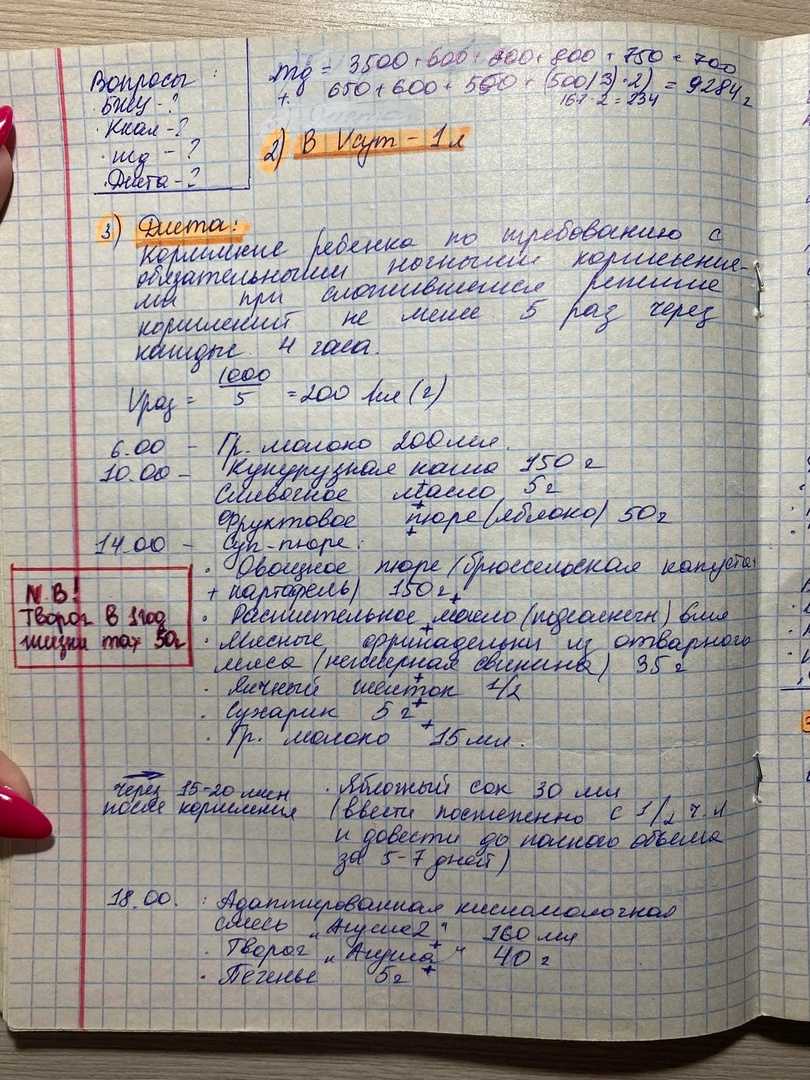 Вопросы:
· БЖУ - ?
· Ккал - ?
· mд - ?
· Диета - ?
mд = 3500 + 600 + 800 + 800 + 750 + 700
+ 650 + 600 + 550 + (500/3)·2) = 9284 г
167·2 = 234
2) В Vсут - 1 л
3) Диета:
Кормление ребенка по требованию с
обязательными ночными кормления-
ми при сложившемся режиме
кормлений не мене 5 раз через
каждые 4 часа.
Vраз = 1000/5 = 200 мл (г)
6.00 - Гр. молоко 200 мл.
10.00 - Кукурузная каша 150 г
+
Сливочное масло 5 г
+
Фруктовое пюре (яблоко) 50 г
14.00 - Суп-пюре:
· Овощное пюре (брюссельская капуста +
+ картофель) 150 г
+
· Растительное масло (подсолнечн) 6 мл
+
· Мясные фрикадельки из отварного
мяса (нежирная свинина) 35 г
+
· Яичный желток 1/2
+
· Сухарик 5 г
+
· Гр. молоко 15 мл.
N.B!
Творог в 1 год
жизни max 50 г
через 15-20 мин · Яблочный сок 30 мл
после кормления (ввести постепенно с 1/2 ч.л
и довести до полного объема
за 5-7 дней)
18.00. : Адаптированная кисломолочная
смесь „Агуша 2" 160 мл
+
· Творог „Агуша" 40 г
+
· Печенье 5 г